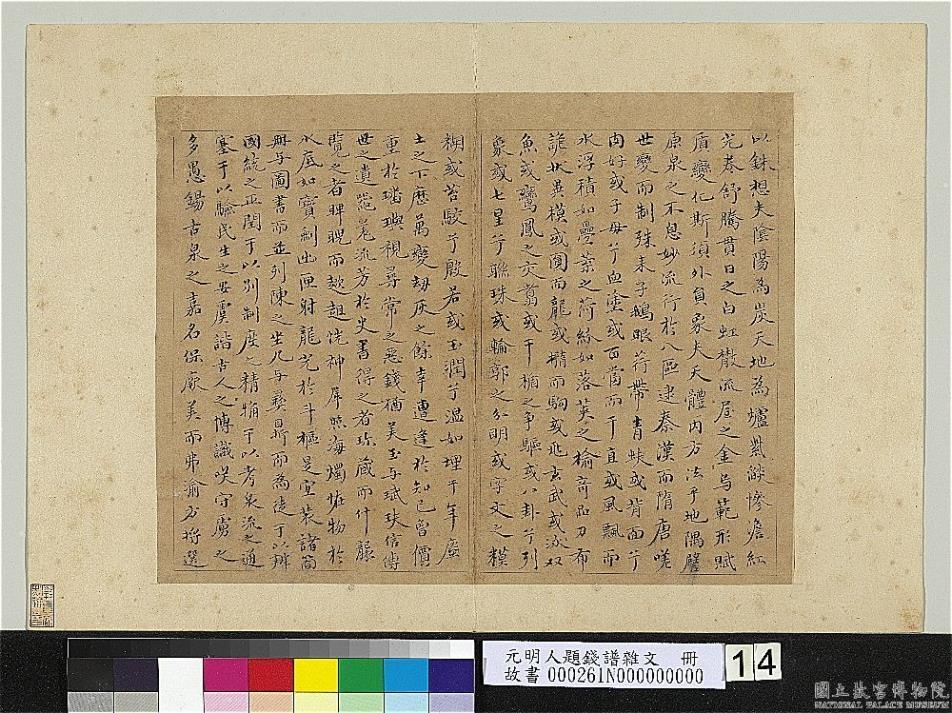 以銖想夫陰陽為炭天地為爐紫𦦨慘澹紅
光卷舒騰貫日之白虹散流屋之金烏範形賦
質變化斯須外員象夫天體內方法乎地隅譬
原泉之不息妙流行於八區逮秦漢而隋唐嘆
世變而制殊耒子鵝眼荇帶青蚨或背面兮
肉好或子母兮血塗或百當而千直或風飄而
水浮積如疊葉之荷絲如落英之榆齊即刀布
詭狀異模或圜而龍或橢而駒或龜玄武或泳双
魚或鸞鳳之交翥或干楯之爭驅或八卦兮列
象或七星兮聯珠或輪郭之分明或字文之模
糊或苔駮兮殷若或玉潤兮溫如埋千年廢
土之下歷萬變劫灰之餘幸遭逢於知己曾價
重於璠璵視尋常之惡錢猶美玉与珷玞信傳
世之遺寶晃流芳於史書得之者珍藏而什襲
覽之者睥睨而趑趄恍神犀照海燭怪物於
水底如寶劍出匣射龍光於斗樞是宜裝諸簡
冊与圖書而並列陳之坐几与彝鼎而為徒于以辨
國統之正閏于以別制度之精觕于以考泉流之通
塞于以驗民生之安虞諧古人之博識咲守虜之
多愚錫古泉之嘉名保厥美而弗渝
元明人題錢譜雜文 冊
故書 000261N000000000
14
國立故宮博物院
NATIONAL PALACE MUSEUM